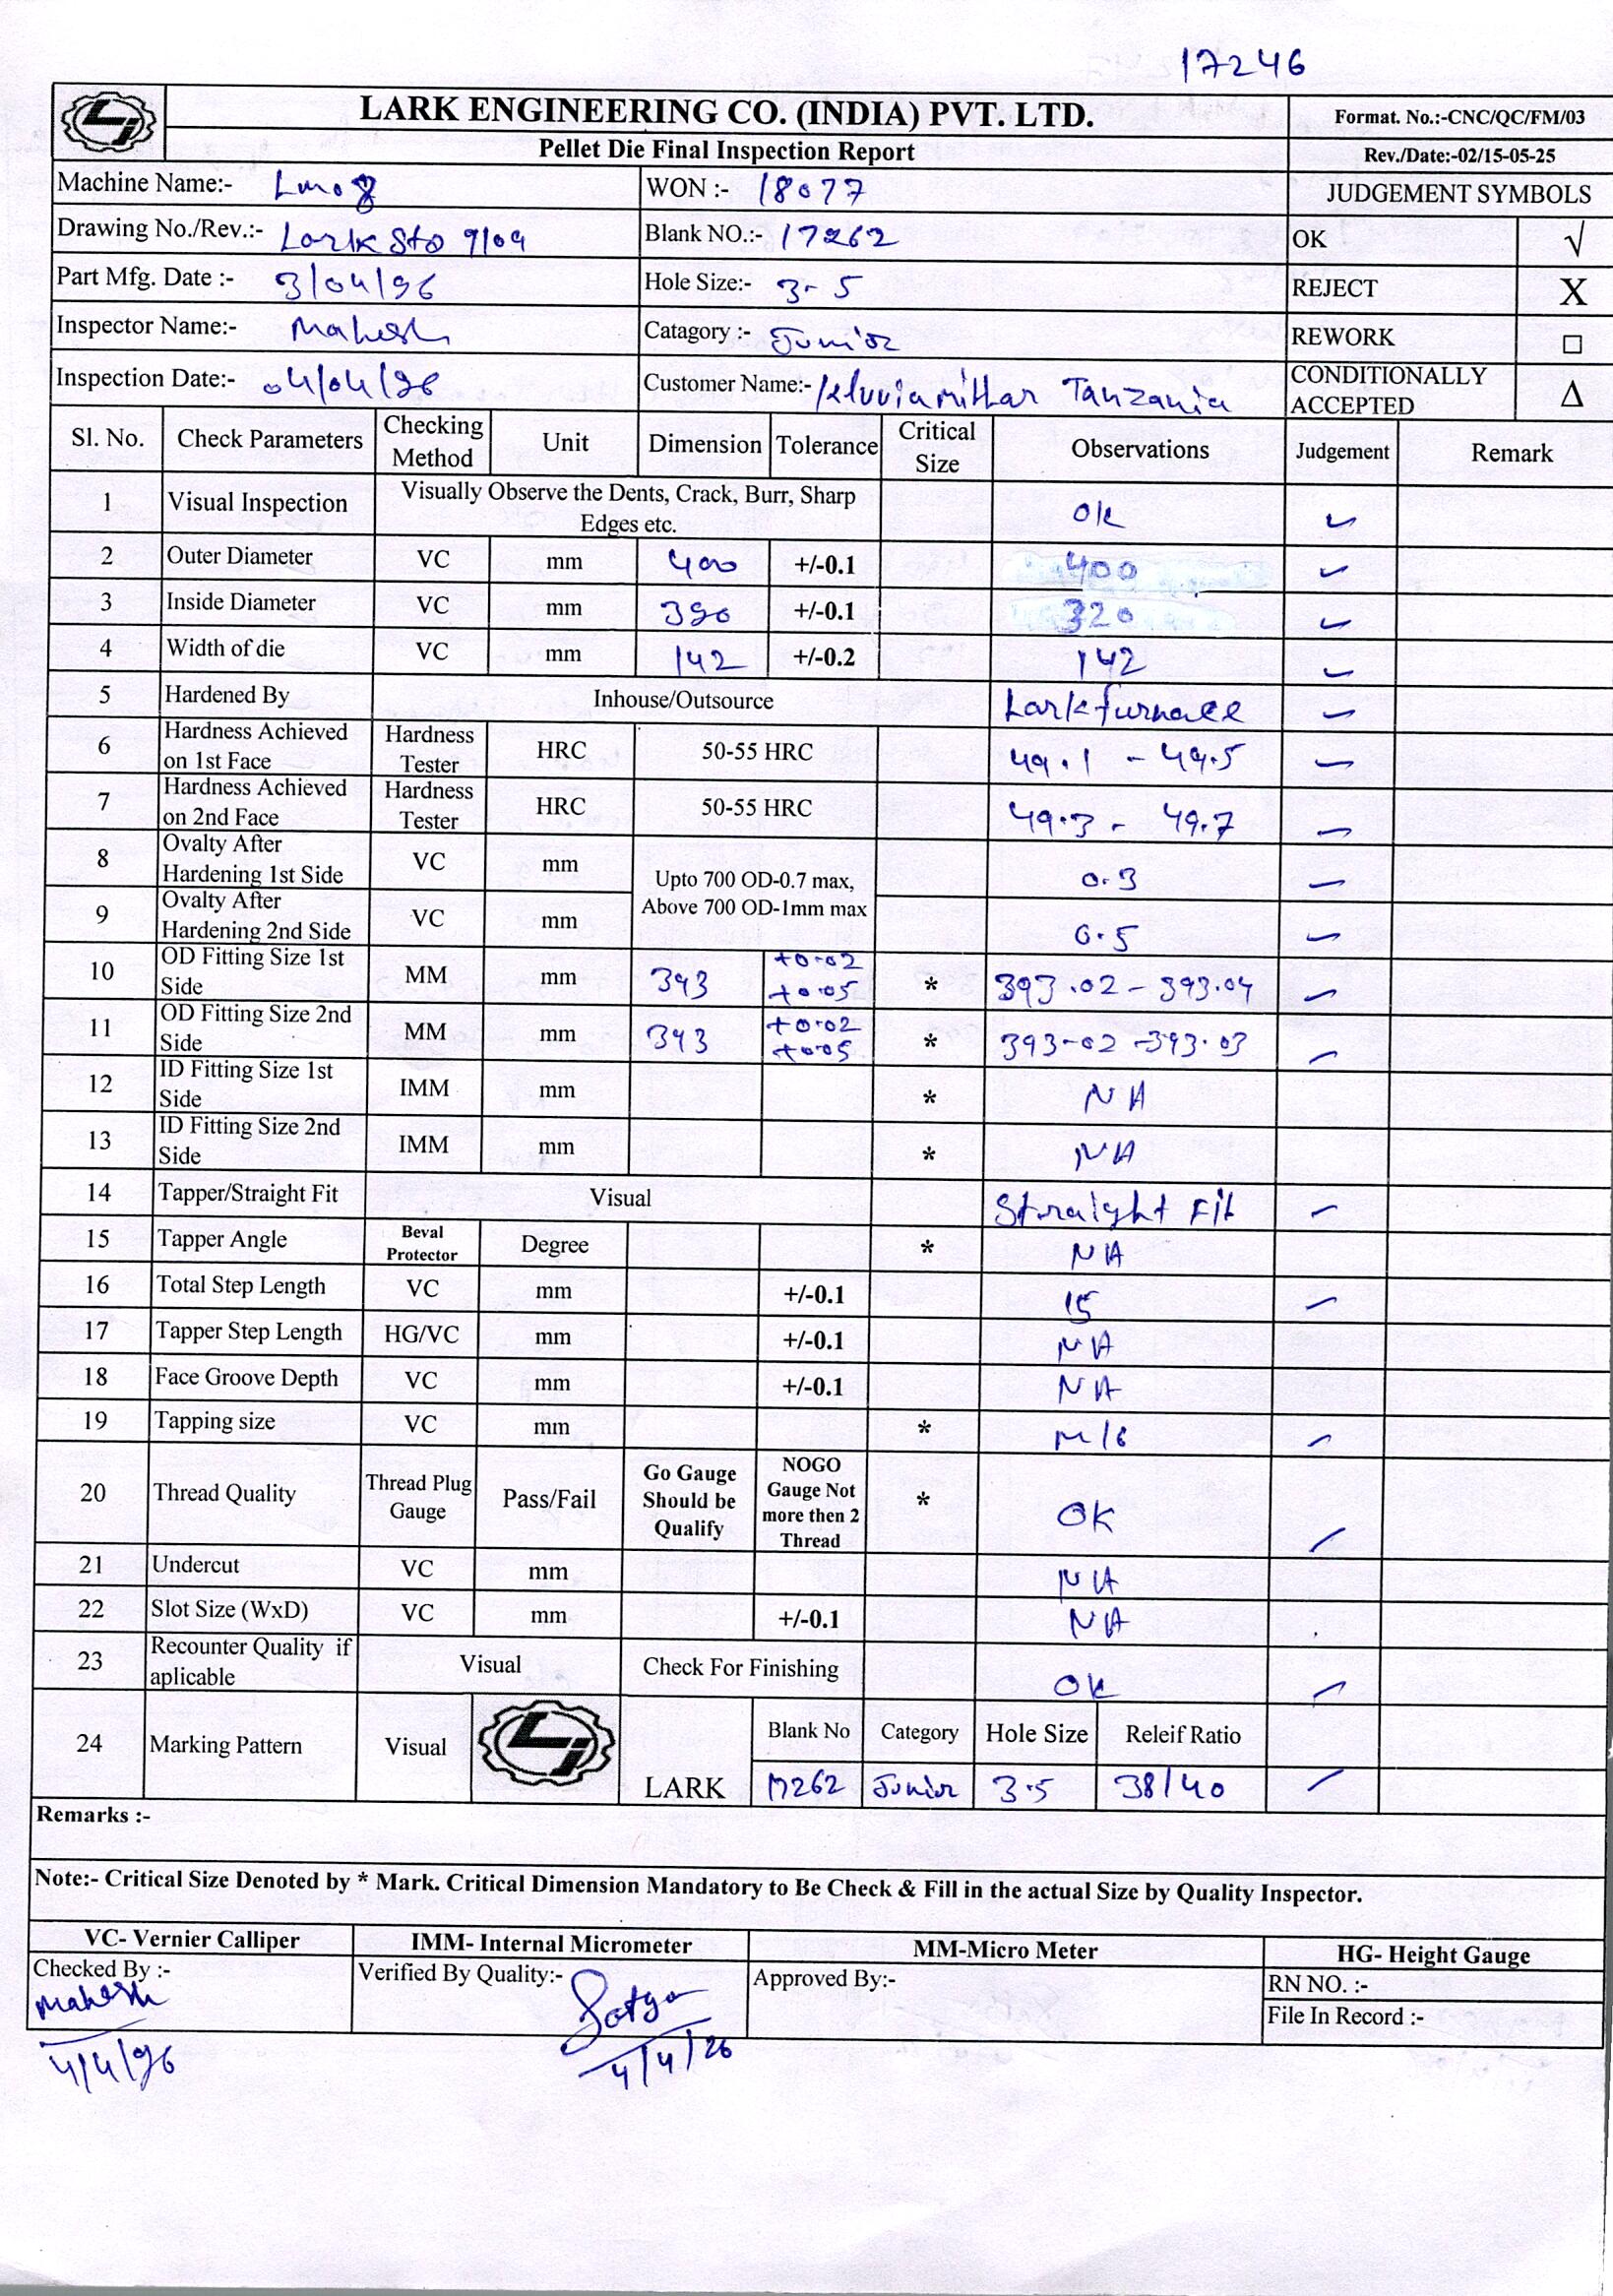 17246
LARK ENGINEERING CO. (INDIA) PVT. LTD.
Format. No.:-CNC/QC/FM/03
Pellet Die Final Inspection Report
Rev./Date:-02/15-05-25
Machine Name:-
WON :- 18077
JUDGEMENT SYMBOLS
Drawing No./Rev.:- Lark Std 9/09
Blank NO.:- 17262
OK √
Part Mfg. Date :- 3/04/26
Hole Size:- 3-5
REJECT X
Inspector Name:- Mahesh
Catagory :- Junior
REWORK □
Inspection Date:- 04/04/26
Customer Name:- Tanzania
CONDITIONALLY ACCEPTED Δ
Sl. No. Check Parameters Checking Method Unit Dimension Tolerance Critical Size Observations Judgement Remark
1 Visual Inspection Visually Observe the Dents, Crack, Burr, Sharp Edges etc. OK ✓
2 Outer Diameter VC mm 400 +/-0.1 400 ✓
3 Inside Diameter VC mm +/-0.1 320 ✓
4 Width of die VC mm 142 +/-0.2 142 ✓
5 Hardened By Inhouse/Outsource Lark furnace ✓
6 Hardness Achieved on 1st Face Hardness Tester HRC 50-55 HRC 49.1 - 49.5 ✓
7 Hardness Achieved on 2nd Face Hardness Tester HRC 50-55 HRC 49.3 - 49.7 ✓
8 Ovalty After Hardening 1st Side VC mm Upto 700 OD-0.7 max, Above 700 OD-1mm max 0.3 ✓
9 Ovalty After Hardening 2nd Side VC mm 0.5 ✓
10 OD Fitting Size 1st Side MM mm 393 +0.02 +0.05 * 393.02 - 393.04 ✓
11 OD Fitting Size 2nd Side MM mm 393 +0.02 +0.05 * 393-02 - 393.03 ✓
12 ID Fitting Size 1st Side IMM mm * NA
13 ID Fitting Size 2nd Side IMM mm * NA
14 Tapper/Straight Fit Visual Straight Fit ✓
15 Tapper Angle Beval Protector Degree * NA
16 Total Step Length VC mm +/-0.1 15 ✓
17 Tapper Step Length HG/VC mm +/-0.1 NA
18 Face Groove Depth VC mm +/-0.1 NA
19 Tapping size VC mm * M16 ✓
20 Thread Quality Thread Plug Gauge Pass/Fail Go Gauge Should be Qualify NOGO Gauge Not more then 2 Thread * OK ✓
21 Undercut VC mm NA
22 Slot Size (WxD) VC mm +/-0.1 NA
23 Recounter Quality if aplicable Visual Check For Finishing OK ✓
24 Marking Pattern Visual LARK Blank No Category Hole Size Releif Ratio
17262 Junior 3.5 38/40 ✓
Remarks :-
Note:- Critical Size Denoted by * Mark. Critical Dimension Mandatory to Be Check & Fill in the actual Size by Quality Inspector.
VC- Vernier Calliper IMM- Internal Micrometer MM-Micro Meter HG- Height Gauge
Checked By :- Mahesh
Verified By Quality:- Satya
Approved By:-
RN NO. :-
File In Record :-
4/4/26
4/4/26